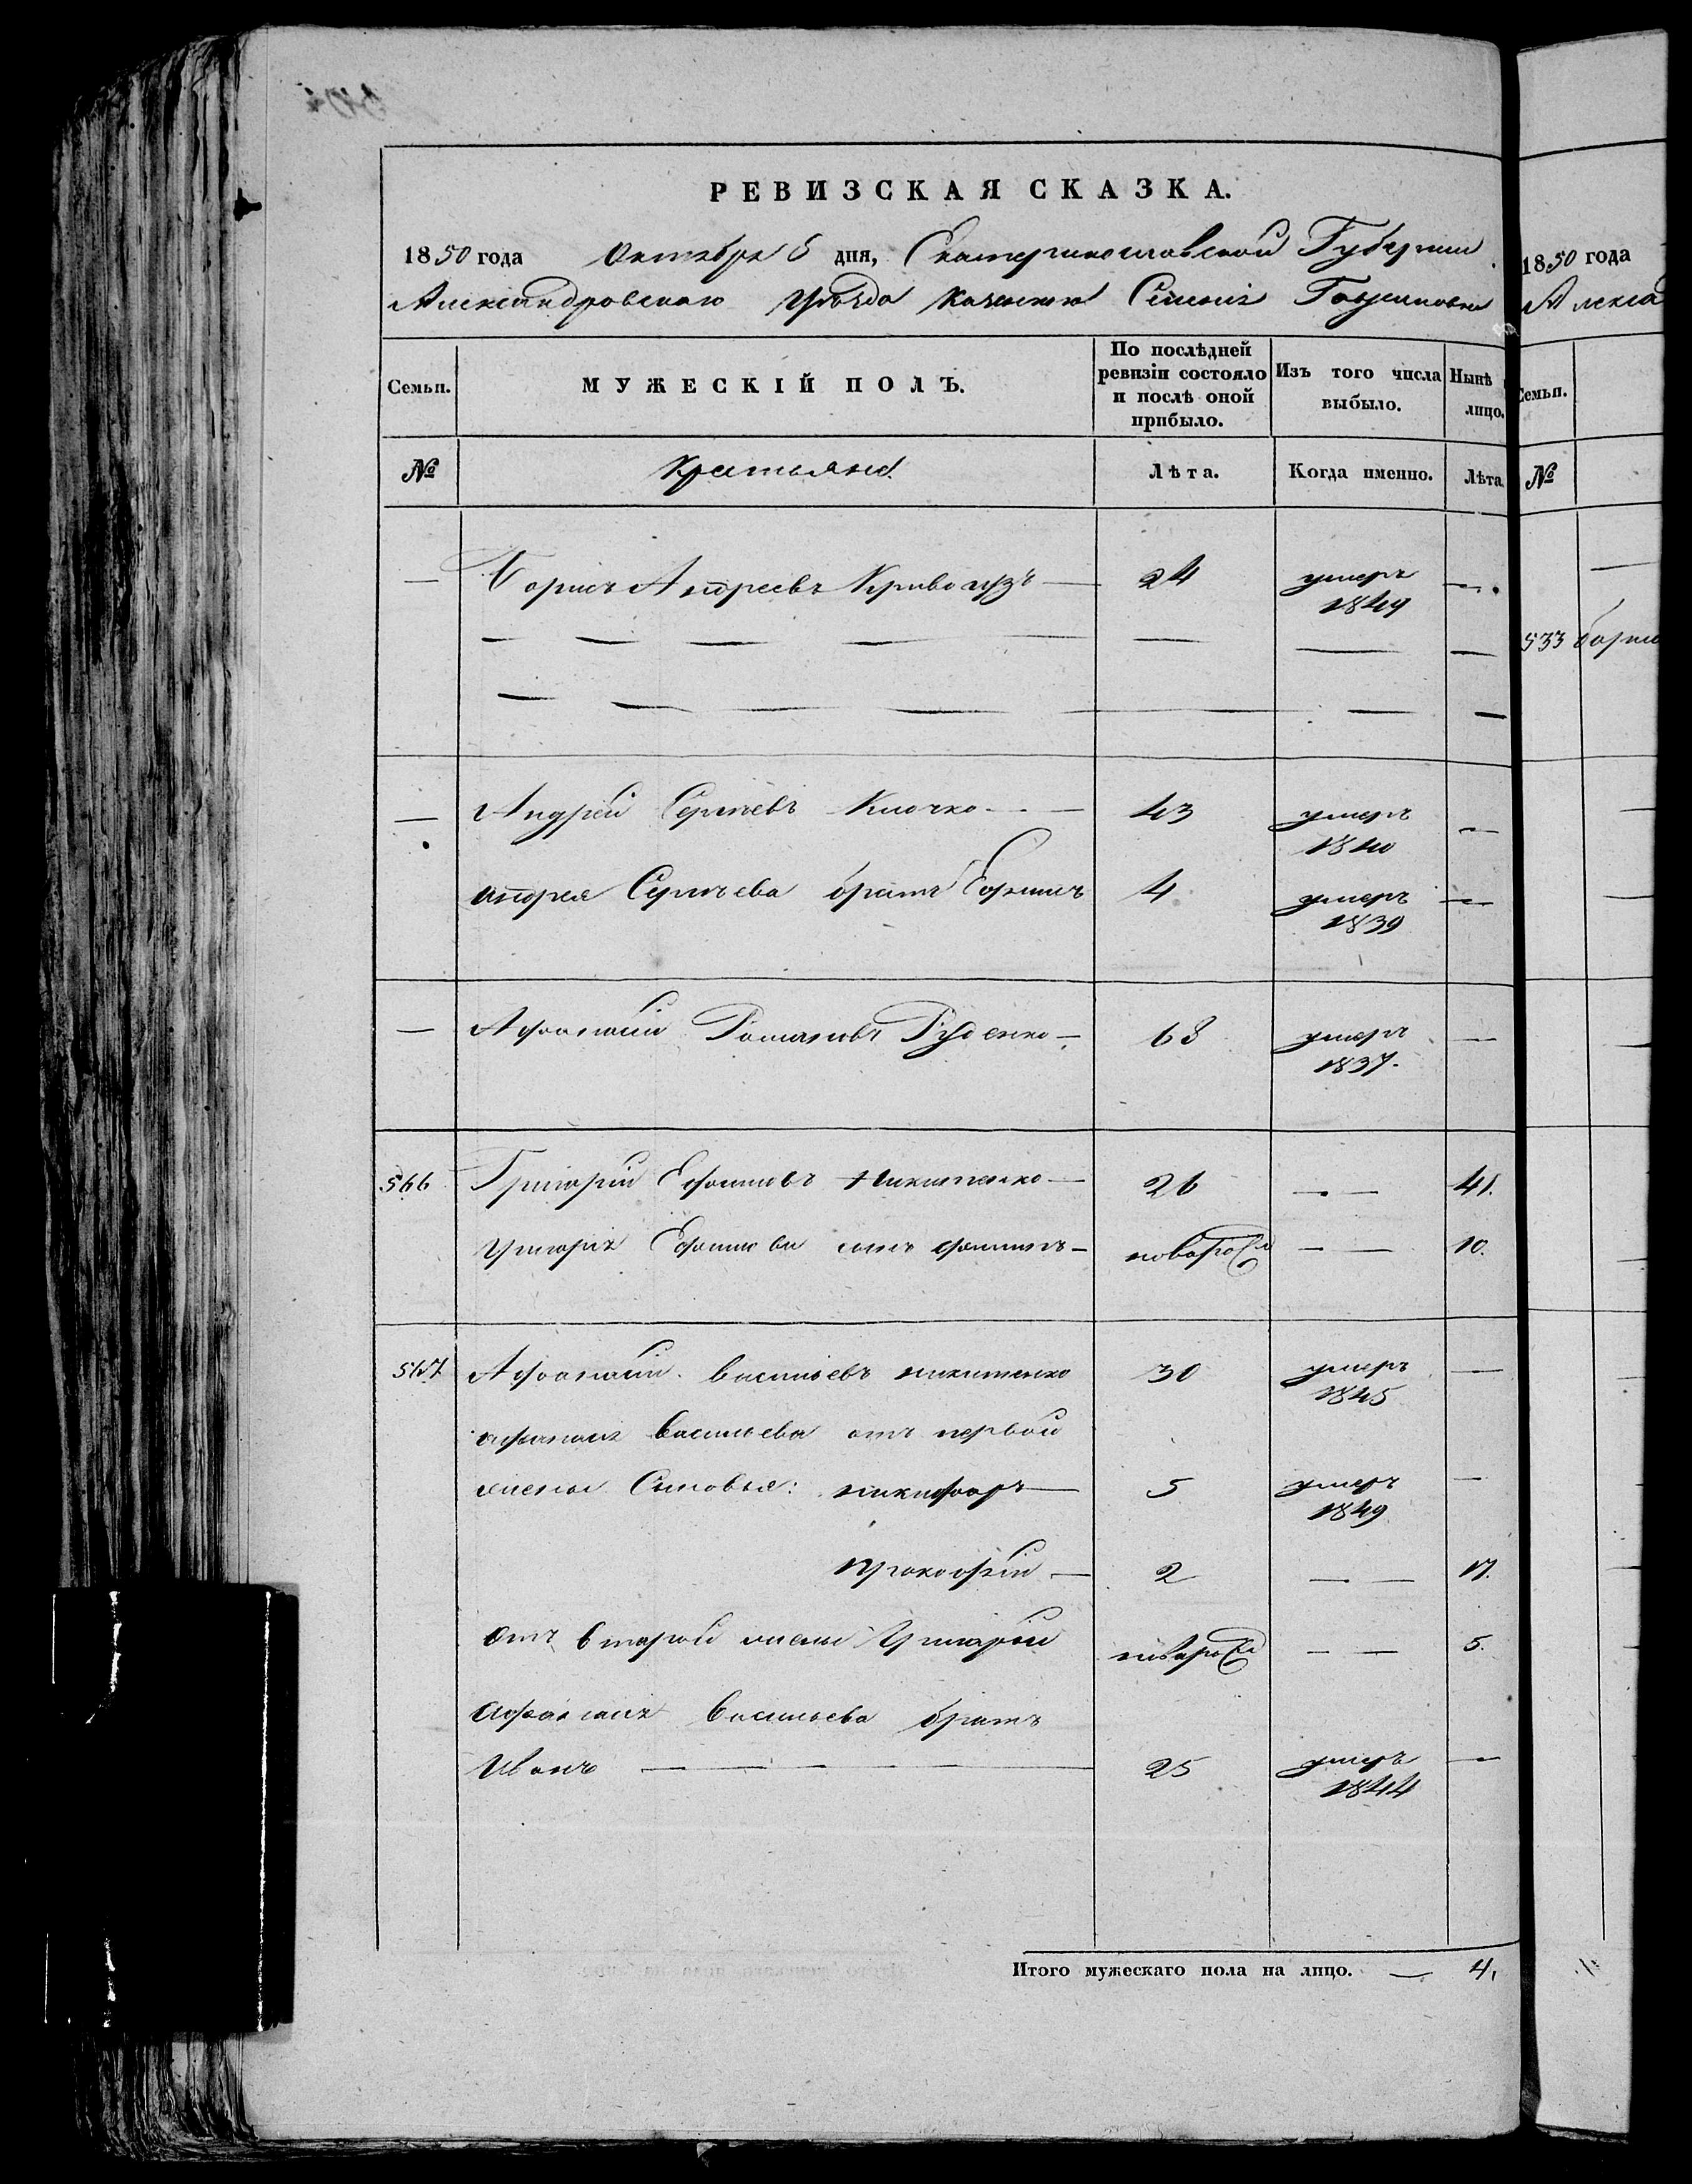 РЕВИЗСКАЯ СКАЗКА.
1850 года Октября 6 дня, Екатеринославской Губернии
Александровскаго уѣзда казеннаго Селенія
Семьи.
МУЖЕСКІЙ ПОЛЪ.
По послѣдней ревизіи состояло и послѣ оной прибыло.
Изъ того числа выбыло.
Нынѣ лицо.
№
Крестьяне
Лѣта.
Когда именно.
Лѣта.
— Борисъ Андреевъ — 24 умеръ 1849 —
— Андрей Сергѣевъ Клочко — 43 умеръ 1840 —
андрея Сергѣева братъ Ефимъ 4 умеръ 1839 —
— Афонасій Романовъ Руденко — 68 умеръ 1837. —
566 Григорій Ефимовъ Никитенко — 26 — — 41.
Григорія Ефимова сынъ — новоро — — 10.
567 Афонасій Васильевъ никитенко 30 умеръ 1845 —
афанасія Васильева отъ первой
жены Сыновья: никифоръ — 5 умеръ 1849 —
Прокофій — 2 — — 17.
Отъ второй жены Григорій новоро — — 5.
Афанасія Васильева братъ
Иванъ — 25 умеръ 1844 —
Итого мужескаго пола на лицо. — 4.
1850 года
Алекса
Семьи.
№
533